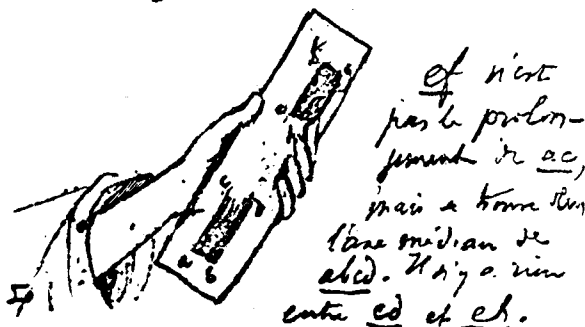 ef n'est
pas le prolon-
gement de ac,
mais se trouve dans
l'axe médian de
abcd. Il n'y a rien
entre cd et eh.
a
b
c
e